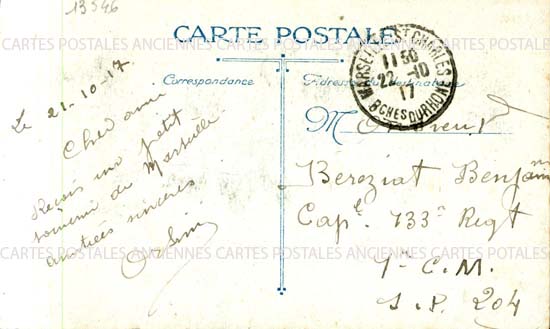 13546
CARTE POSTALE
CARTES POSTALES ANCIENNES CARTES POSTALES ANCIENNES CARTES POSTALES
Correspondance
Adresse du destinataire
MARSEILLE ST CHARLES
11 50
22 -10
17
BCHES DU RHONE
Le 21-10-17
Cher ami
Recois un petit
souvenir de Marseille
amitiés sincères
M
Bereziat Benjamin
Capl. 133e Regt
1re C. M.
S. P. 204
CARTES POSTALES ANCIENNES CARTES POSTALES ANCIENNES CARTES POSTALES